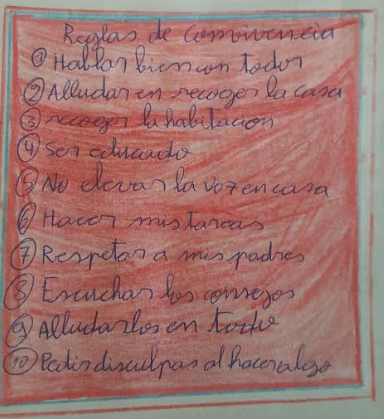 Reglas de convivencia
1 Hablar bien con todos
2 Alludar en recoger la casa
3 recoger la habitacion
4 Ser educado
5 No elevar la voz en casa
6 Hacer mis tareas
7 Respetar a mis padres
8 Escuchar los consegos
9 Alludarlos en todo
10 Pedir disculpas al hacer algo